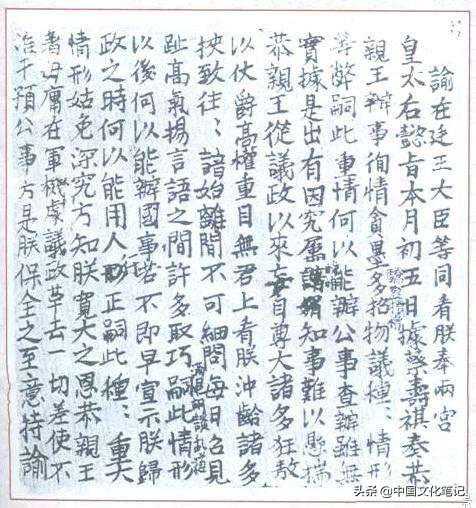 諭在廷王大臣等同看朕奉兩宮
皇太后懿旨本月初五日據蔡壽祺奏恭
親王辦事徇情貪墨驕盈攬權多招物議種:情形
等弊嗣此重情何以能辦公事查辦雖無
實據是出有因究屬曖昧知事難以懸揣
恭親王從議政以來妄自尊大諸多狂敖
以仗爵高權重目無君上看朕沖齡諸多
挾致往:諳始離間不可細問每日召見
趾高氣揚言語之間許多取巧滿是胡談亂道嗣此情形
以後何以能辦國事若不即早宣示朕歸
政之時何以能用人行正嗣此種:重大
情形姑免深究方知朕寬大之恩恭親王
著毋庸在軍機處議政革去一切差使不
准干預公事方是朕保全之至意特諭
头条 @中国文化笔记